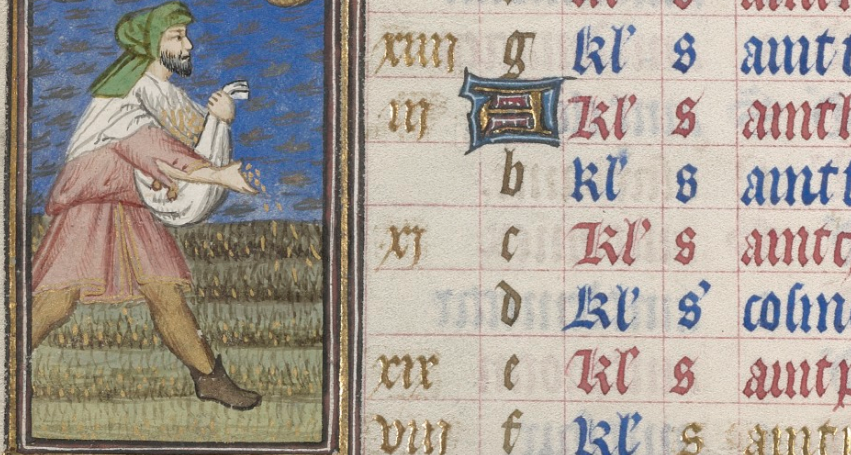 xiiij g kl' s aint
iij A kl' s aint
b kl' s aint
xj c kl' s aint
d kl' s' cosm
xix e kl' s aint
viij f kl' s aint